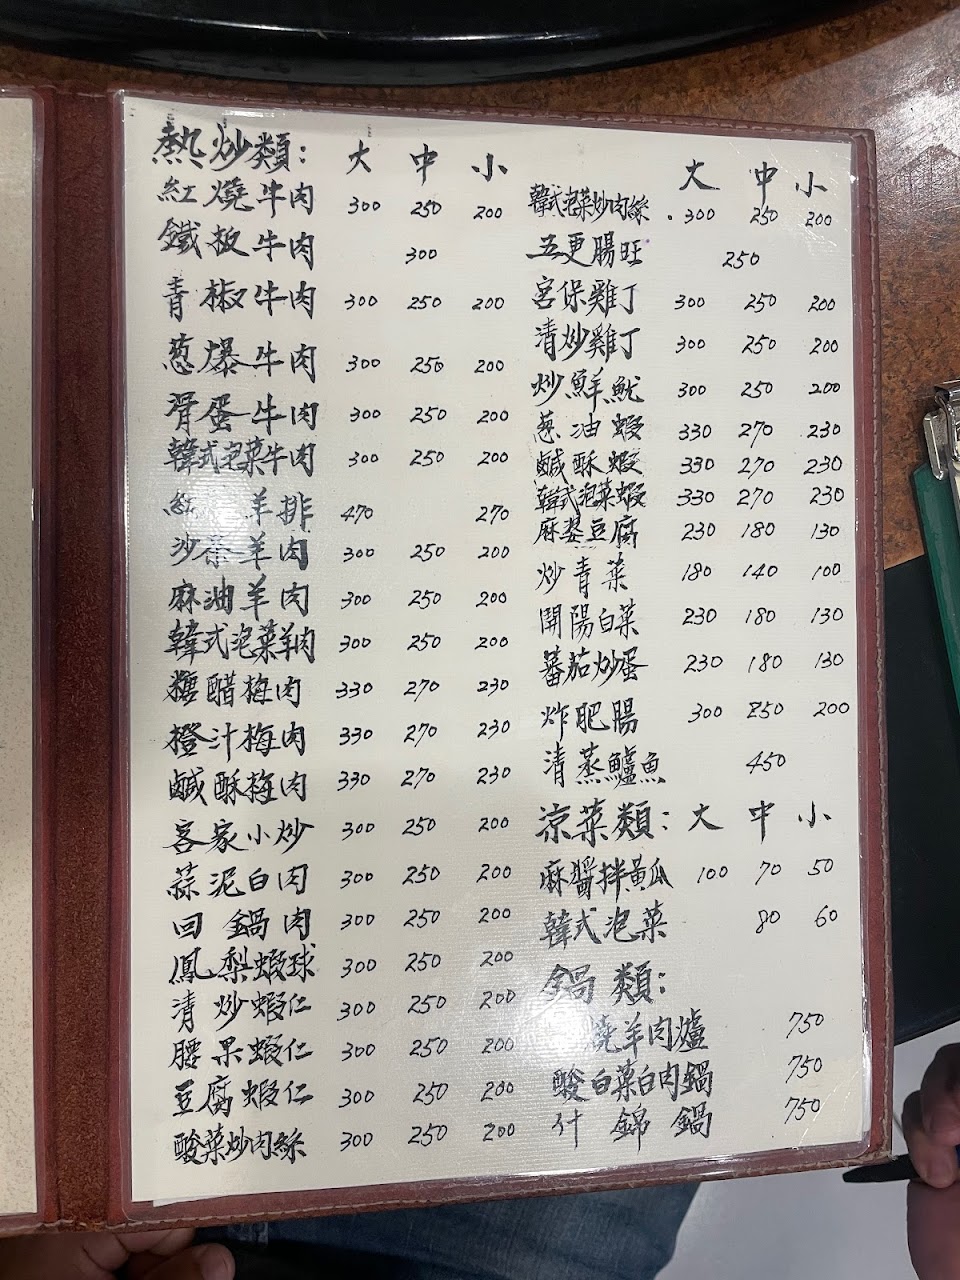 熱炒類: 大 中 小
紅燒牛肉 300 250 200
鐵板牛肉 300
青椒牛肉 300 250 200
蔥爆牛肉 300 250 200
滑蛋牛肉 300 250 200
韓式泡菜牛肉 300 250 200
紅 羊排 470 270
沙茶羊肉 300 250 200
麻油羊肉 300 250 200
韓式泡菜羊肉 300 250 200
糖醋梅肉 330 270 230
橙汁梅肉 330 270 230
鹹酥梅肉 330 270 230
客家小炒 300 250 200
蒜泥白肉 300 250 200
回鍋肉 300 250 200
鳳梨蝦球 300 250 200
清炒蝦仁 300 250 200
腰果蝦仁 300 250 200
豆腐蝦仁 300 250 200
酸菜炒肉絲 300 250 200
大 中 小
韓式泡菜炒肉絲 300 250 200
五更腸旺 250
宮保雞丁 300 250 200
清炒雞丁 300 250 200
炒鮮魷 300 250 200
蔥油蝦 330 270 230
鹹酥蝦 330 270 230
韓式泡菜蝦 330 270 230
麻婆豆腐 230 180 130
炒青菜 180 140 100
開陽白菜 230 180 130
蕃茄炒蛋 230 180 130
炸肥腸 300 250 200
清蒸鱸魚 450
涼菜類: 大 中 小
麻醬拌黃瓜 100 70 50
韓式泡菜 80 60
鍋類:
燒羊肉爐 750
酸白菜白肉鍋 750
什錦鍋 750